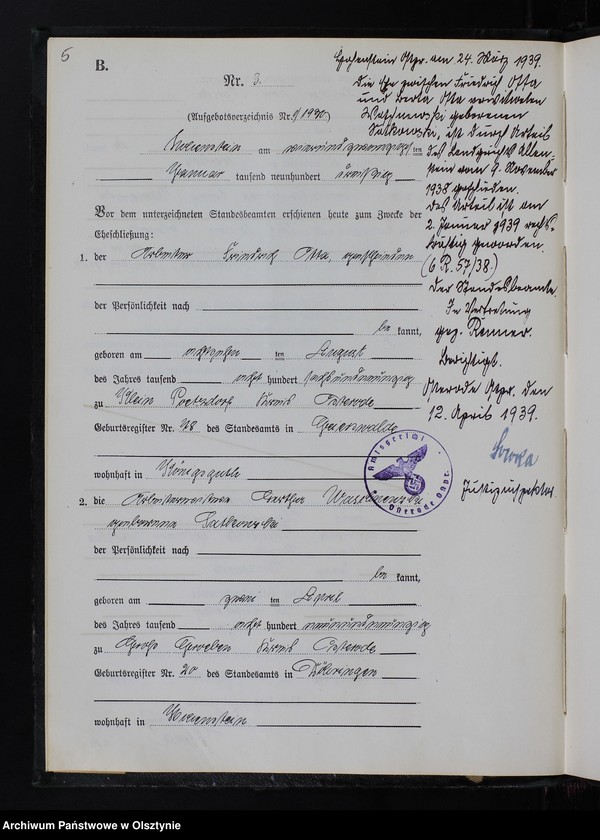 5
B.
Nr. 3.
(Aufgebotsverzeichnis Nr. 1/1930)
Hohenstein am vierundzwanzigsten
Januar tausend neunhundert dreißig
Vor dem unterzeichneten Standesbeamten erschienen heute zum Zwecke der
Eheschließung:
1. der Arbeiter Friedrich Otta, geschieden
der Persönlichkeit nach
be kannt,
geboren am achtzehn ten August
des Jahres tausend acht hundert sechsundneunzig
zu Klein Kreis Osterode
Geburtsregister Nr. 48 des Standesamts in Geierswalde
wohnhaft in Königsgut
2. die Bertha
geborene Satkowski
der Persönlichkeit nach
be kannt,
geboren am zwei ten April
des Jahres tausend acht hundert neunundneunzig
zu Groß Gröben Kreis Osterode
Geburtsregister Nr. 20 des Standesamts in Döhringen
wohnhaft in Hohenstein
Hohenstein Ostpr. am 24. März 1939.
Die Ehe zwischen Friedrich Otta
und Berta Otta verwitweten
geborenen
Satkowski, ist durch Urteil
des Landgerichts Allen-
stein vom 9. November
1938 geschieden.
Das Urteil ist am
2. Januar 1939 rechts-
kräftig geworden.
(6 R. 57/38.)
Der Standesbeamte.
In Vertretung
gez. Renner.
Berichtigt.
Osterode Ostpr. den
12. April 1939.
Justizinspektor.
Amtsgericht
Osterode Ostpr.
Archiwum Państwowe w Olsztynie